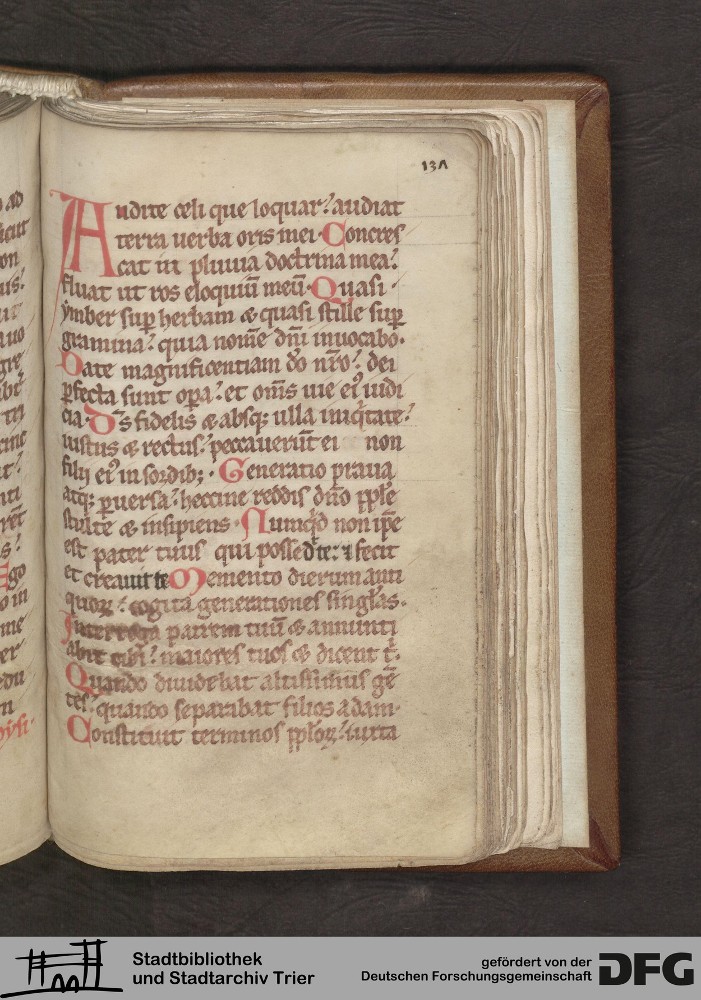 131
Audite celi que loquar: audiat
terra uerba oris mei. Concres
cat in pluuia doctrina mea:
fluat ut ros eloquiū meū. Quasi
ymber sup herbam & quasi stille sup
gramina: quia nom̄e dn̄i inuocabo.
Date magnificentiam do nr̄o: dei
ꝑfecta sunt oꝑa: et om̄s uie eiꝰ iudi
cia. Ds̄ fidelis & absqꝫ ulla iniqͥtate:
iustus & rectus: peccauerūt ei non
filij eiꝰ in sordibꝫ. Generatio praua
atqꝫ ꝑuersa: heccine reddis dn̄o pple
stulte & insipiens. Numqͥd non ip̄e
est pater tuus qui possedͭ te: ⁊ fecit
et creauit te Memento dierum anti
quoꝝ: cogita generationes singl̄as.
Interroga patrem tuū & annunti
abit tibi: maiores tuos & dicent t̄.
Quando diuidebat altissimus gē
tes: quando separabat filios adam.
Constituit terminos pploꝝ: iuxta
Stadtbibliothek
und Stadtarchiv Trier
gefördert von der
Deutschen Forschungsgemeinschaft
DFG